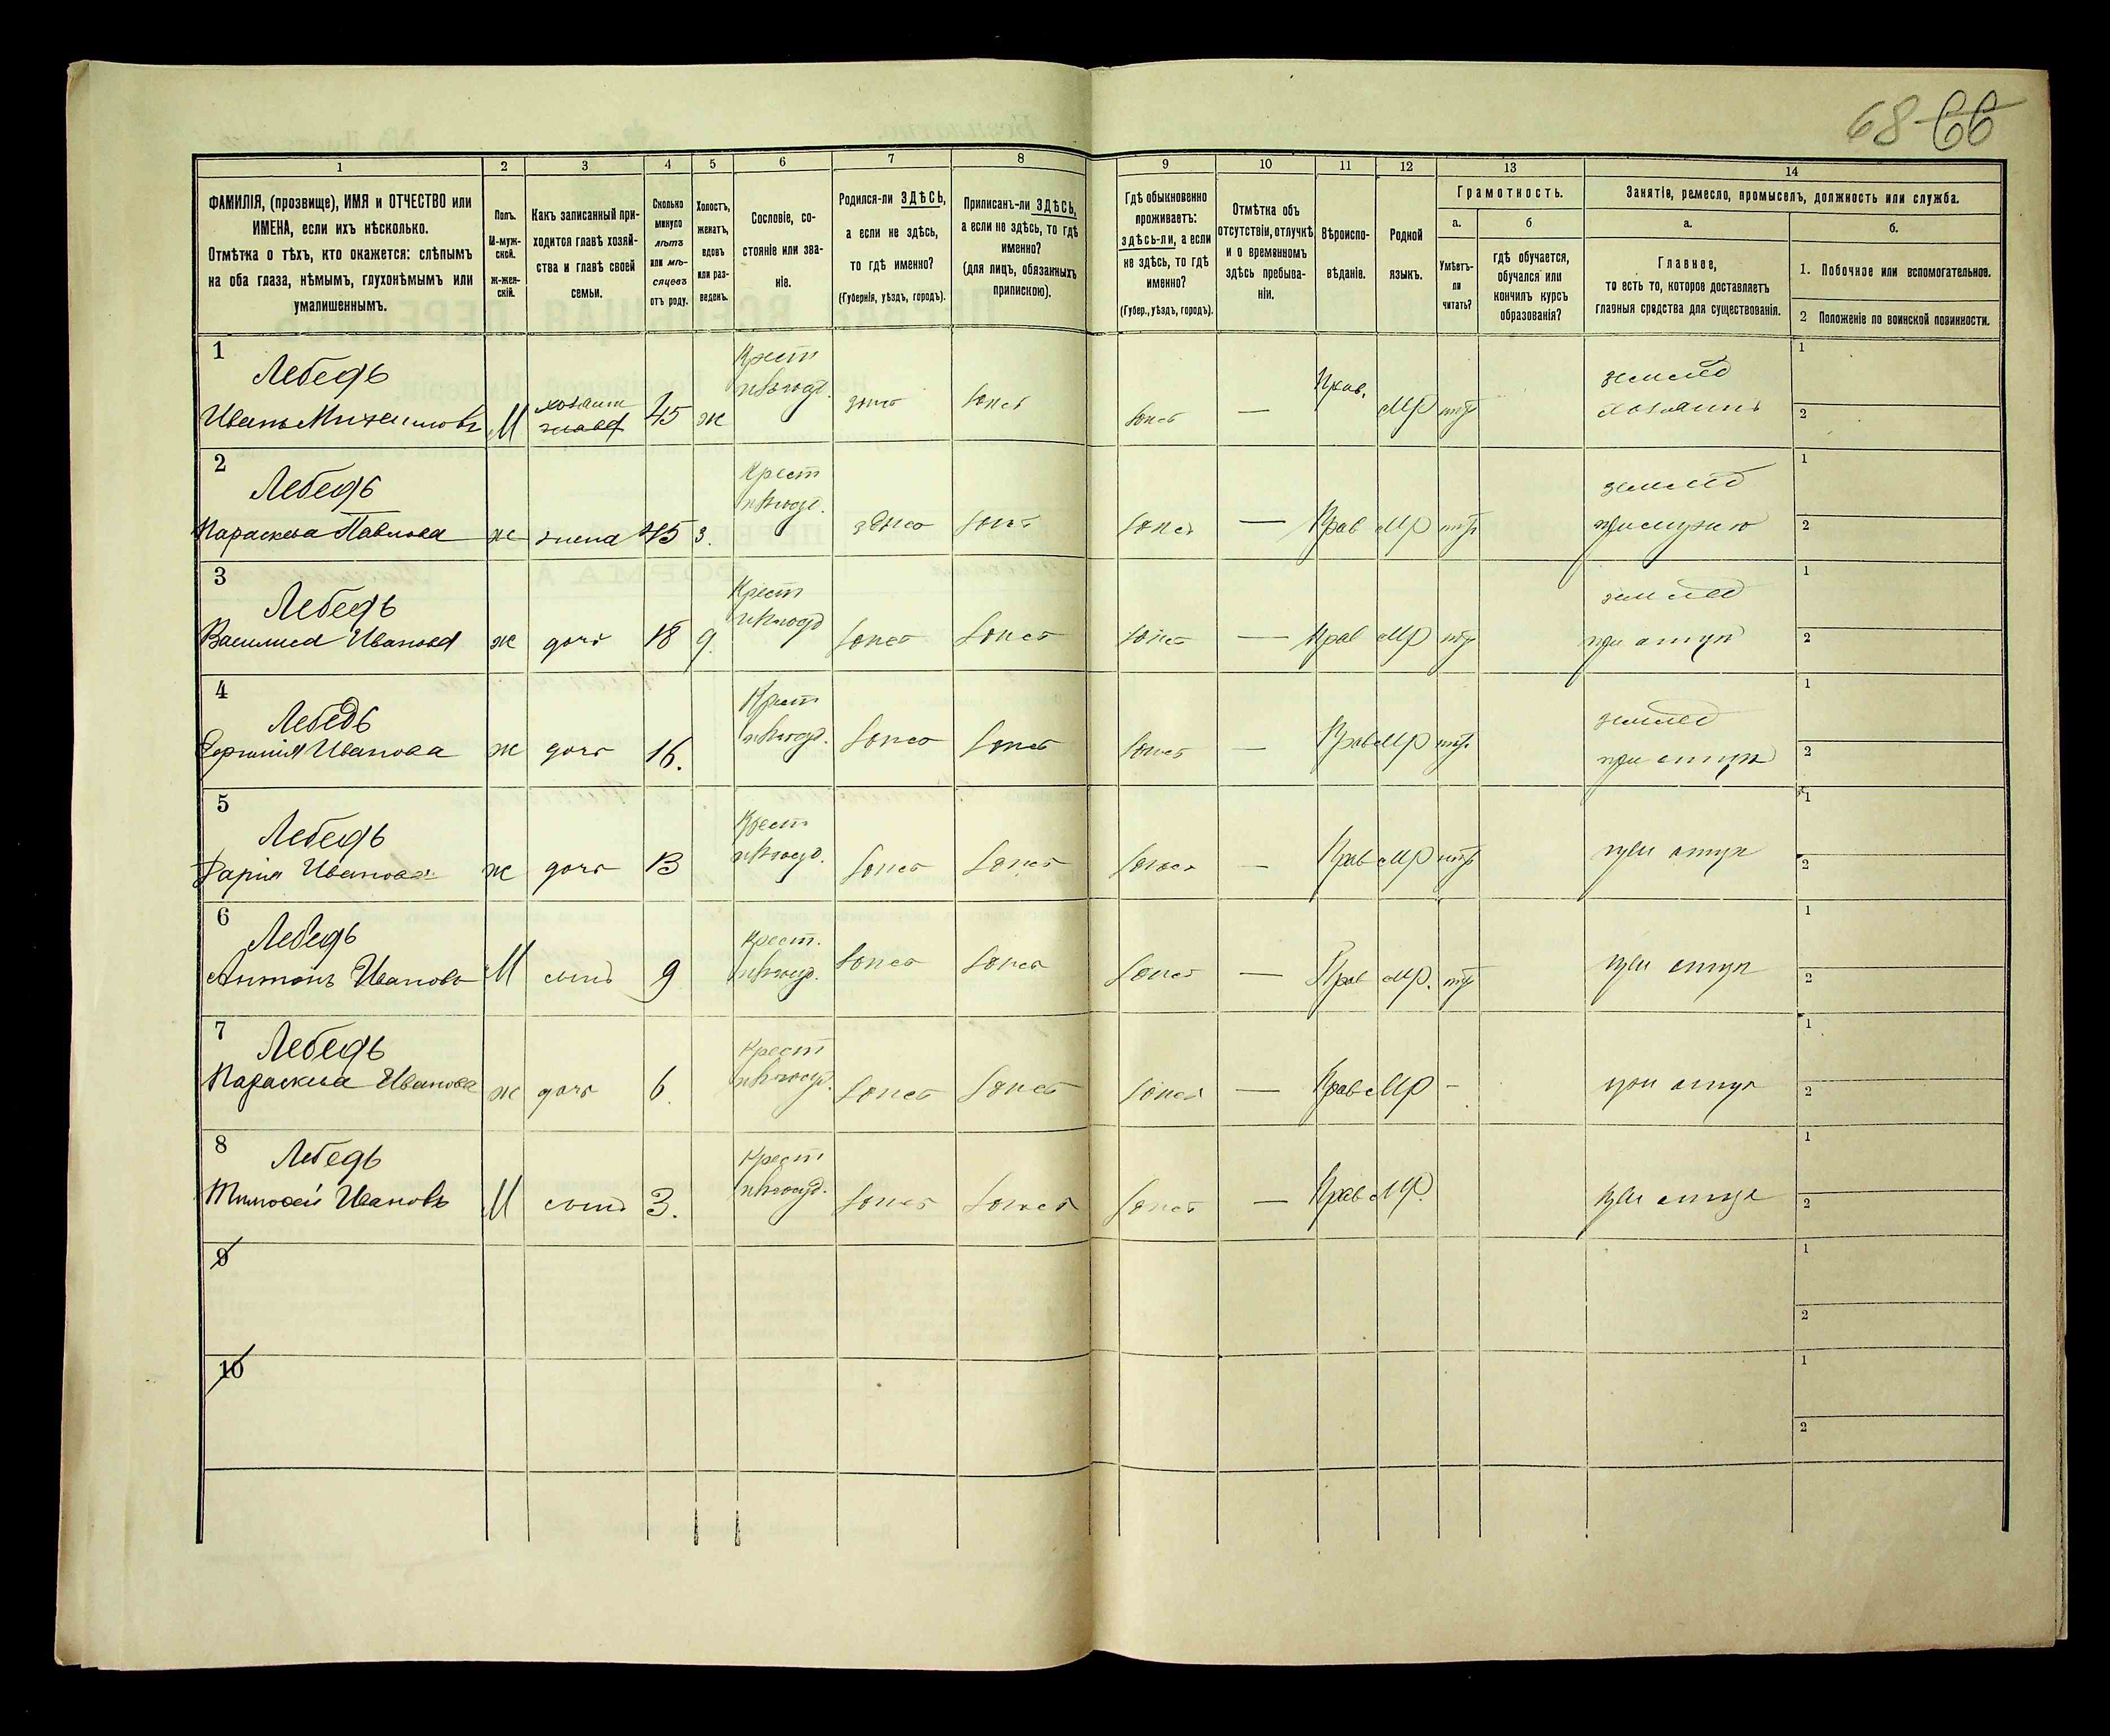 68 66
1 2 3 4 5 6 7 8 9 10 11 12 13 14
ФАМИЛІЯ, (прозвище), ИМЯ и ОТЧЕСТВО или
ИМЕНА, если ихъ нѣсколько.
Отмѣтка о тѣхъ, кто окажется: слѣпымъ
на оба глаза, нѣмымъ, глухонѣмымъ или
умалишеннымъ.
Полъ.
М-муж-
ской.
ж-жен-
скій.
Какъ записанный при-
ходится главѣ хозяй-
ства и главѣ своей
семьи.
Сколько
минуло
лѣтъ
или мѣ-
сяцевъ
отъ роду.
Холостъ,
женатъ,
вдовъ
или раз-
веденъ.
Сословіе, со-
стояніе или зва-
ніе.
Родился-ли ЗДѢСЬ,
а если не здѣсь,
то гдѣ именно?
(Губернія, уѣздъ, городъ).
Приписанъ-ли ЗДѢСЬ,
а если не здѣсь, то гдѣ
именно?
(для лицъ, обязанныхъ
припискою).
Гдѣ обыкновенно
проживаетъ:
здѣсь-ли, а если
не здѣсь, то гдѣ
именно?
(Губер., уѣздъ, городъ).
Отмѣтка объ
отсутствіи, отлучкѣ
и о временномъ
здѣсь пребыва-
ніи.
Вѣроиспо-
вѣданіе.
Родной
языкъ.
Грамотность.
а.
Умѣетъ-
ли
читать?
б
гдѣ обучается,
обучался или
кончилъ курсъ
образованія?
Занятіе, ремесло, промыселъ, должность или служба.
а.
Главное,
то есть то, которое доставляетъ
главныя средства для существованія.
б.
1. Побочное или вспомогательное.
2 Положеніе по воинской повинности.
1
Лебедь Крест землед 1
Иванъ М хозяин 45 ж здѣсь здѣсь здѣсь — Прав. МР хозяинъ 2
2
Лебедь Крест землед 1
Параскева Павлова ж жена 45 з. здѣсь здѣсь здѣсь — Прав МР 2
3
Лебедь Крест землед 1
Василиса Иванова ж дочь 18 д. здѣсь здѣсь здѣсь — Прав МР при отцѣ 2
4
Лебедь Крест землед 1
Иванова ж дочь 16. здѣсь здѣсь здѣсь — Прав МР при отцѣ 2
5
Лебедь Крест 1
Дарія Иванова ж дочь 13 здѣсь здѣсь здѣсь — Прав МР при отцѣ 2
6
Лебедь Крест. 1
Антонъ Ивановъ М сынъ 9 здѣсь здѣсь здѣсь — Прав МР. при отцѣ 2
7
Лебедь Крест 1
Параскева Иванова ж дочь 6. здѣсь здѣсь здѣсь — Прав МР - при отцѣ 2
8
Лебедь Крест 1
Тимофей Ивановъ М сынъ 3. здѣсь здѣсь здѣсь — Прав МР. при отцѣ 2
9 1
2
10 1
2